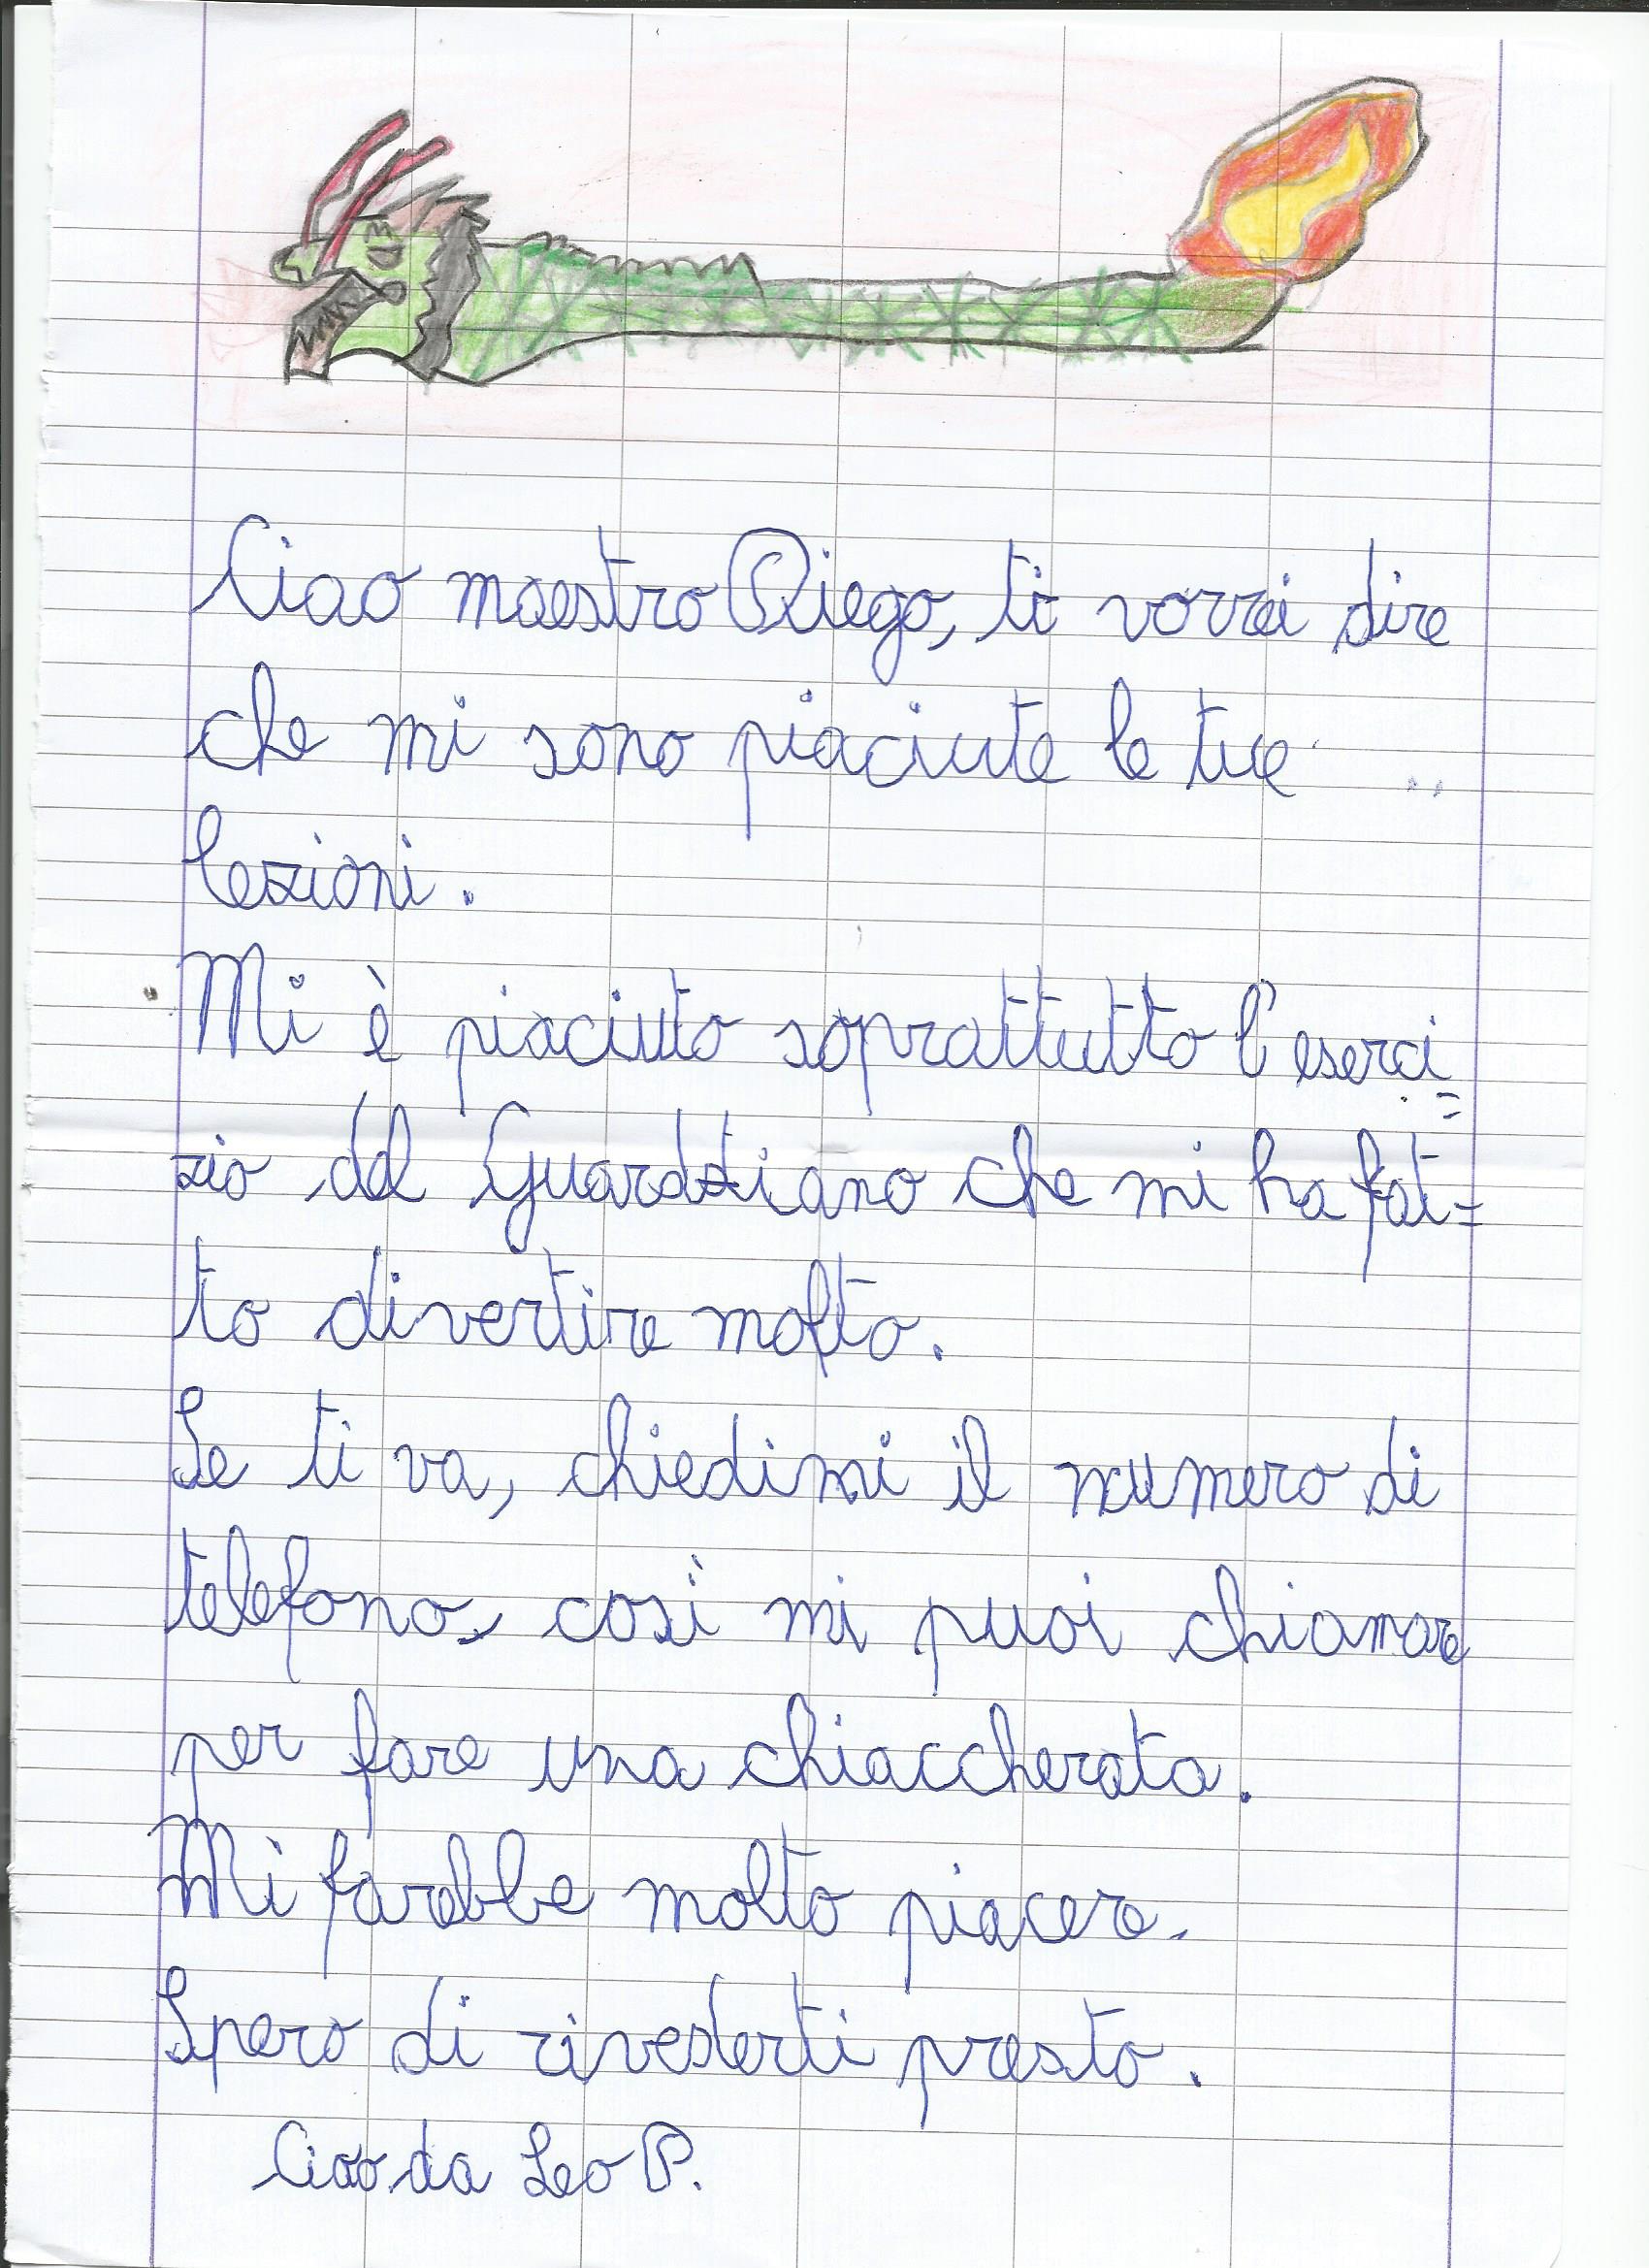 Ciao maestro Diego, ti vorrei dire
che mi sono piaciute le tue
lezioni.
Mi è piaciuto soprattutto l'eserci=
zio del Guardziano che mi ha fat=
to divertire molto.
Se ti va, chiedimi il numero di
telefono, così mi puoi chiamare
per fare una chiaccherata.
Mi farebbe molto piacere.
Spero di rivederti presto.
Ciao da Leo P.